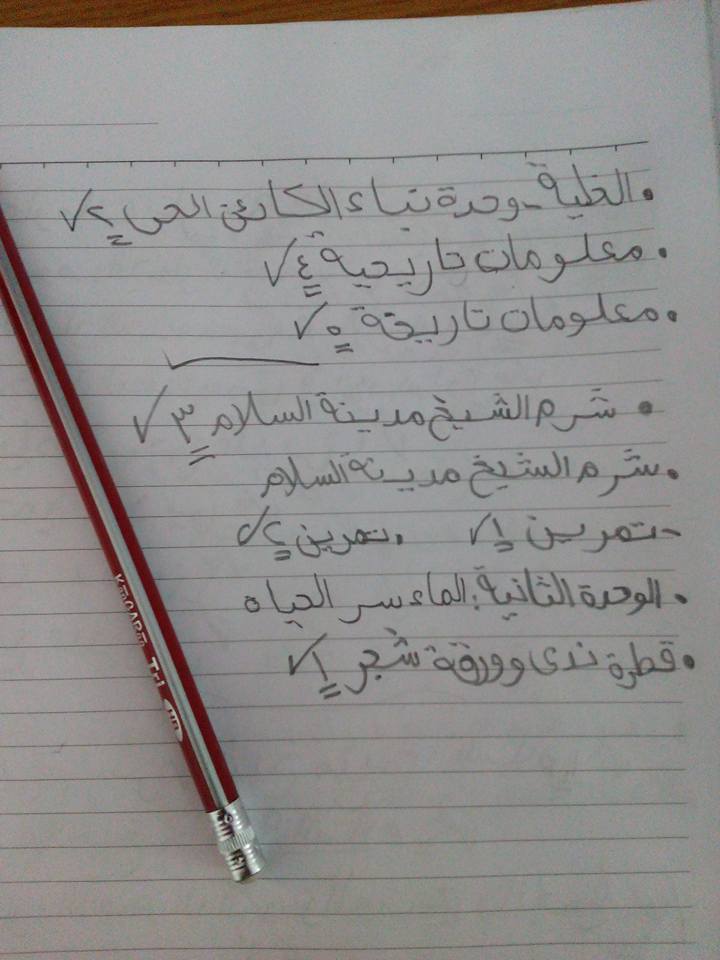 • الخلية - وحدة بناء الكائن الحى ٢ ✓
• معلومات تاريخية ٤ ✓
• معلومات تاريخة ٥ ✓
• شرم الشيخ مدينة السلام ٣ ✓
• شرم الشيخ مدينة السلام
- تمرين ١ ✓ • تمرين ٢ ✓
• الوحدة الثانية: الماء سر الحياه
• قطرة ندى وورقة شجر ١ ✓
Tri